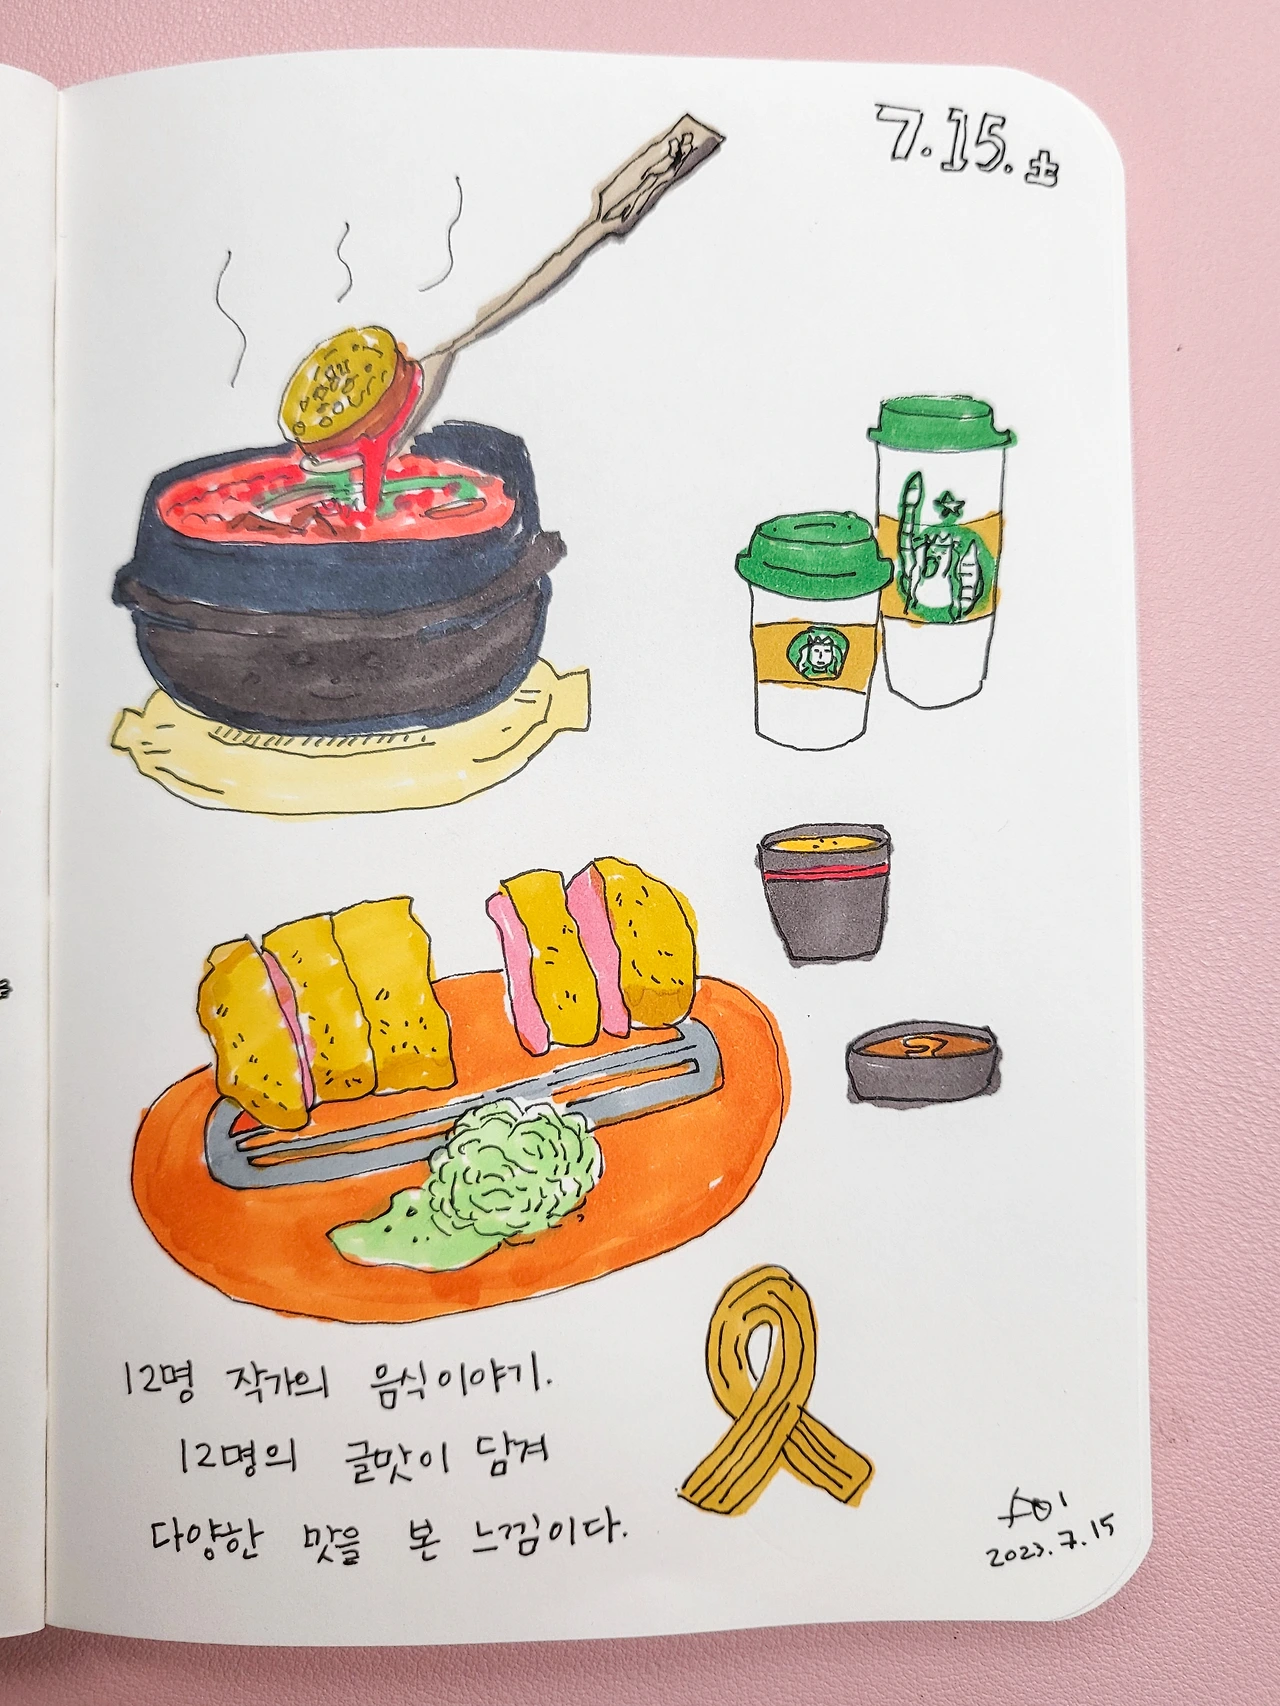 7.15.土
12명 작가의 음식이야기.
12명의 글맛이 담겨
다양한 맛을 본 느낌이다.
2023.7.15